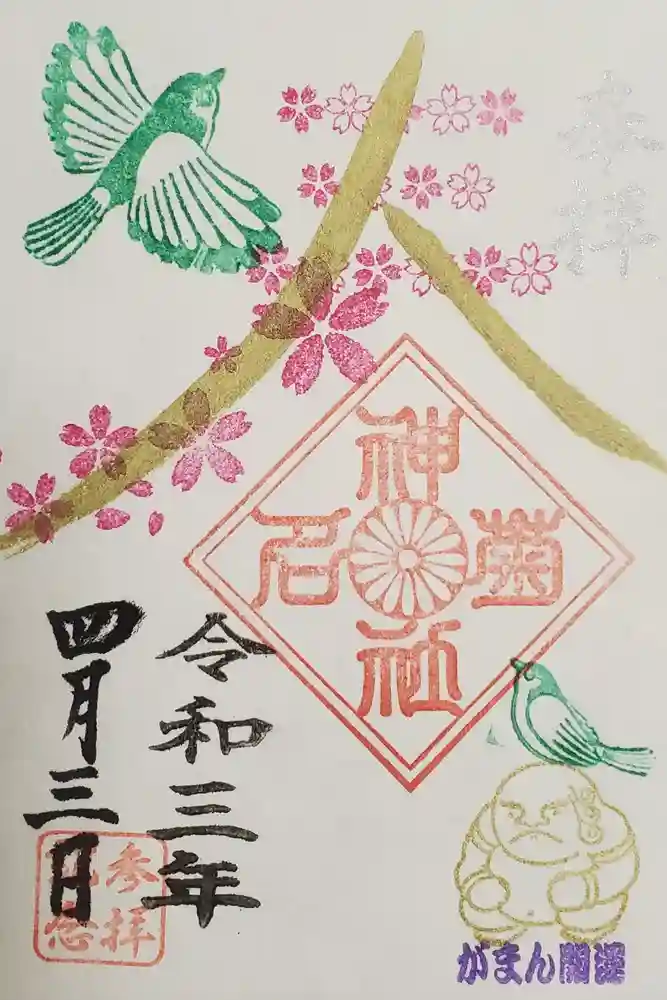 奉拝
菊名神社
令和三年
四月三日
参拝記念
がまん開運